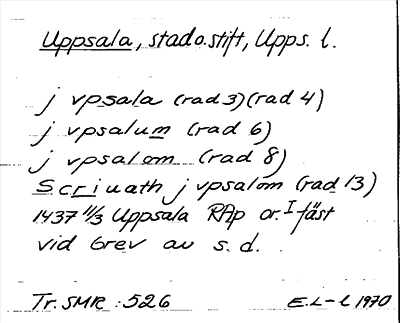 Uppsala, stad o. stift, Upps. l.
j vpsala (rad 3)(rad 4)
j vpsalum (rad 6)
j vpsalom (rad 8)
Scriuath j vpsalom (rad 13)
1437 11/3 Uppsala RAp or. I fäst
vid brev av s. d.
Tr. SMR : 526 E.L-l 1970